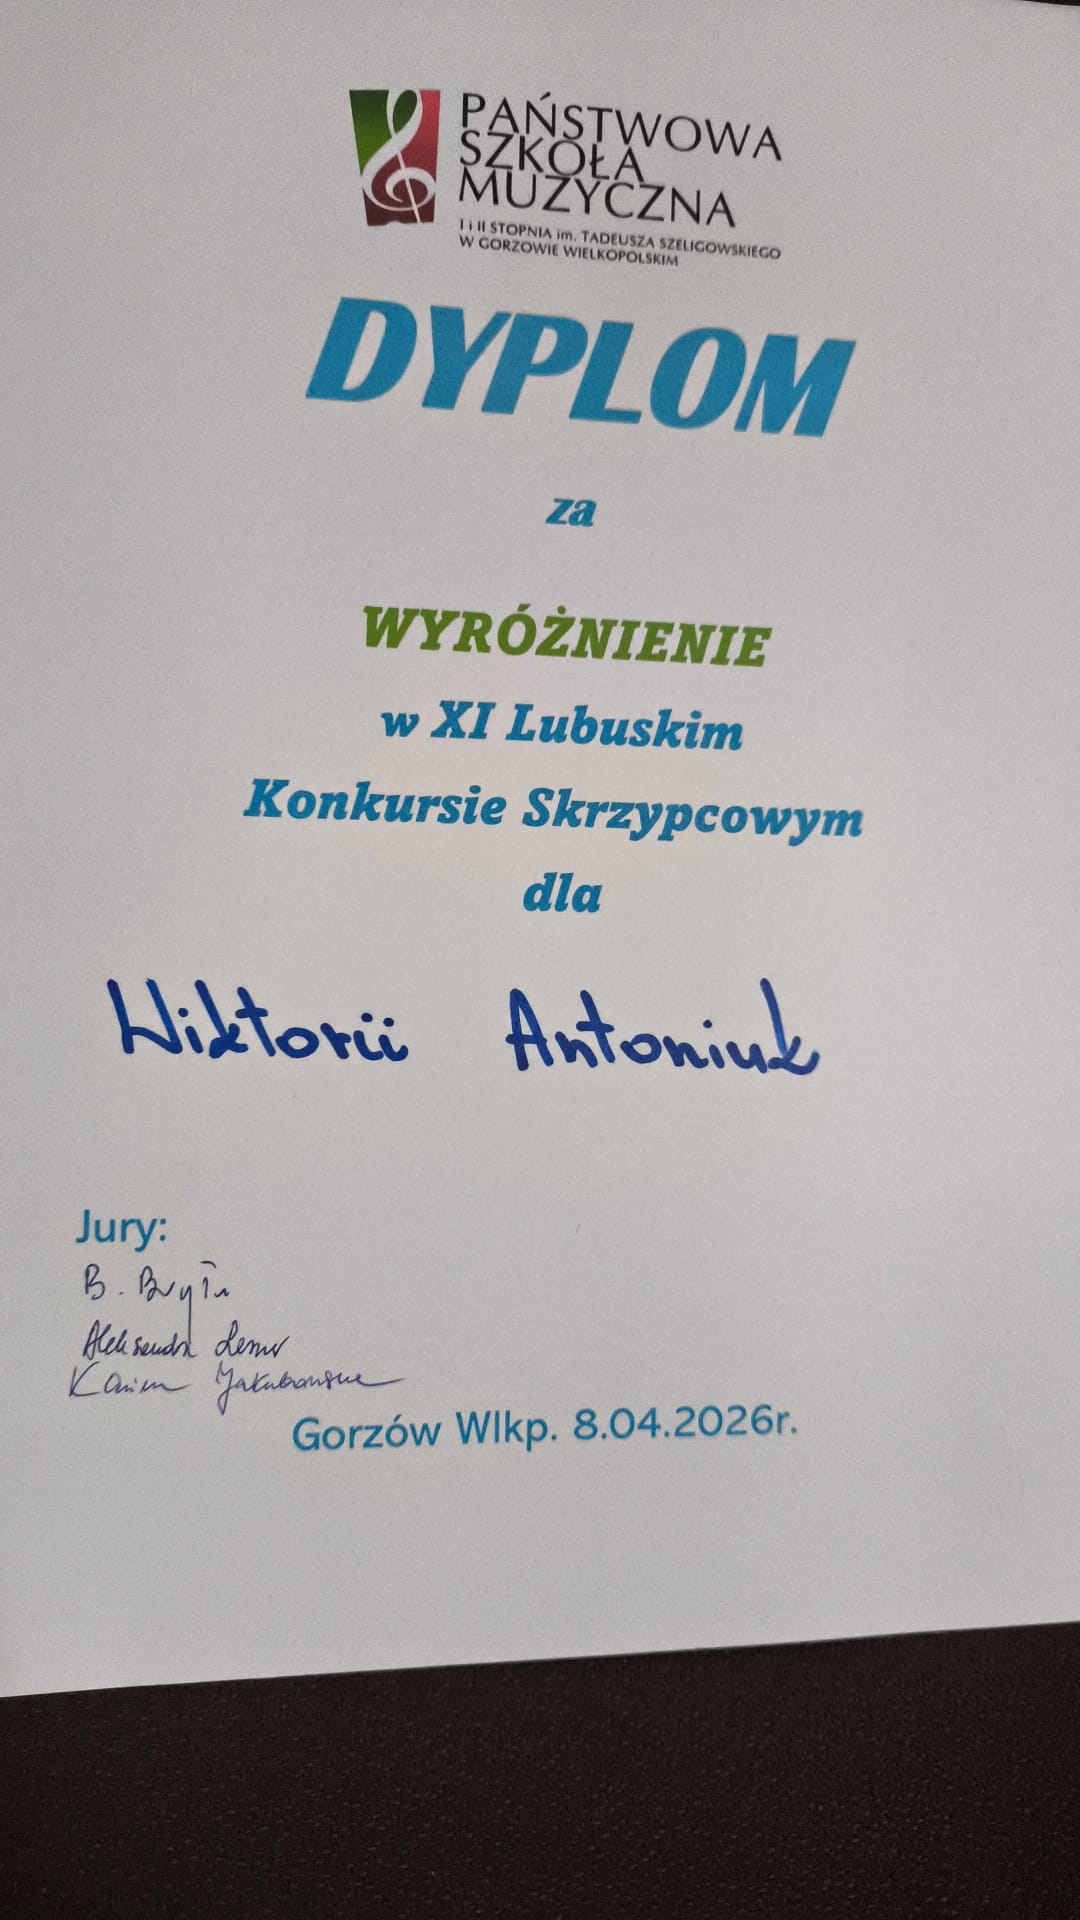 PAŃSTWOWA
SZKOŁA
MUZYCZNA
I i II STOPNIA im. TADEUSZA SZELIGOWSKIEGO
W GORZOWIE WIELKOPOLSKIM
DYPLOM
za
WYRÓŻNIENIE
w XI Lubuskim
Konkursie Skrzypcowym
dla
Wiktorii Antoniuk
Jury:
B.
Aleksandra
Jakubowska
Gorzów Wlkp. 8.04.2026r.